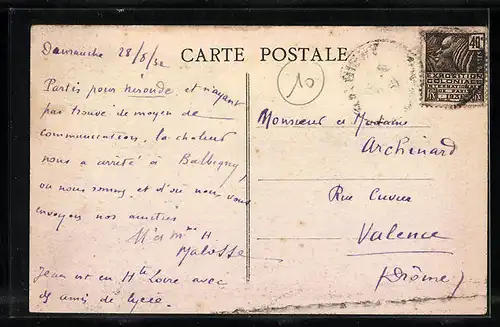 Dimanche 28/8/32
CARTE POSTALE
Partis pour Néronde et n'ayant
pas trouvé de moyen de
communication, la chaleur
nous a arrêté à Balbigny,
où nous sommes et d'où nous vous
envoyons nos amitiés
Mr et Mme H
Malosse
Jean est en Hte Loire avec
des amis de lycée.
10
40c
EXPOSITION
COLONIALE
INTERNATIONALE
PARIS 1931
Monsieur et Madame
Archinard
Rue Cuvier
Valence
(Drôme)